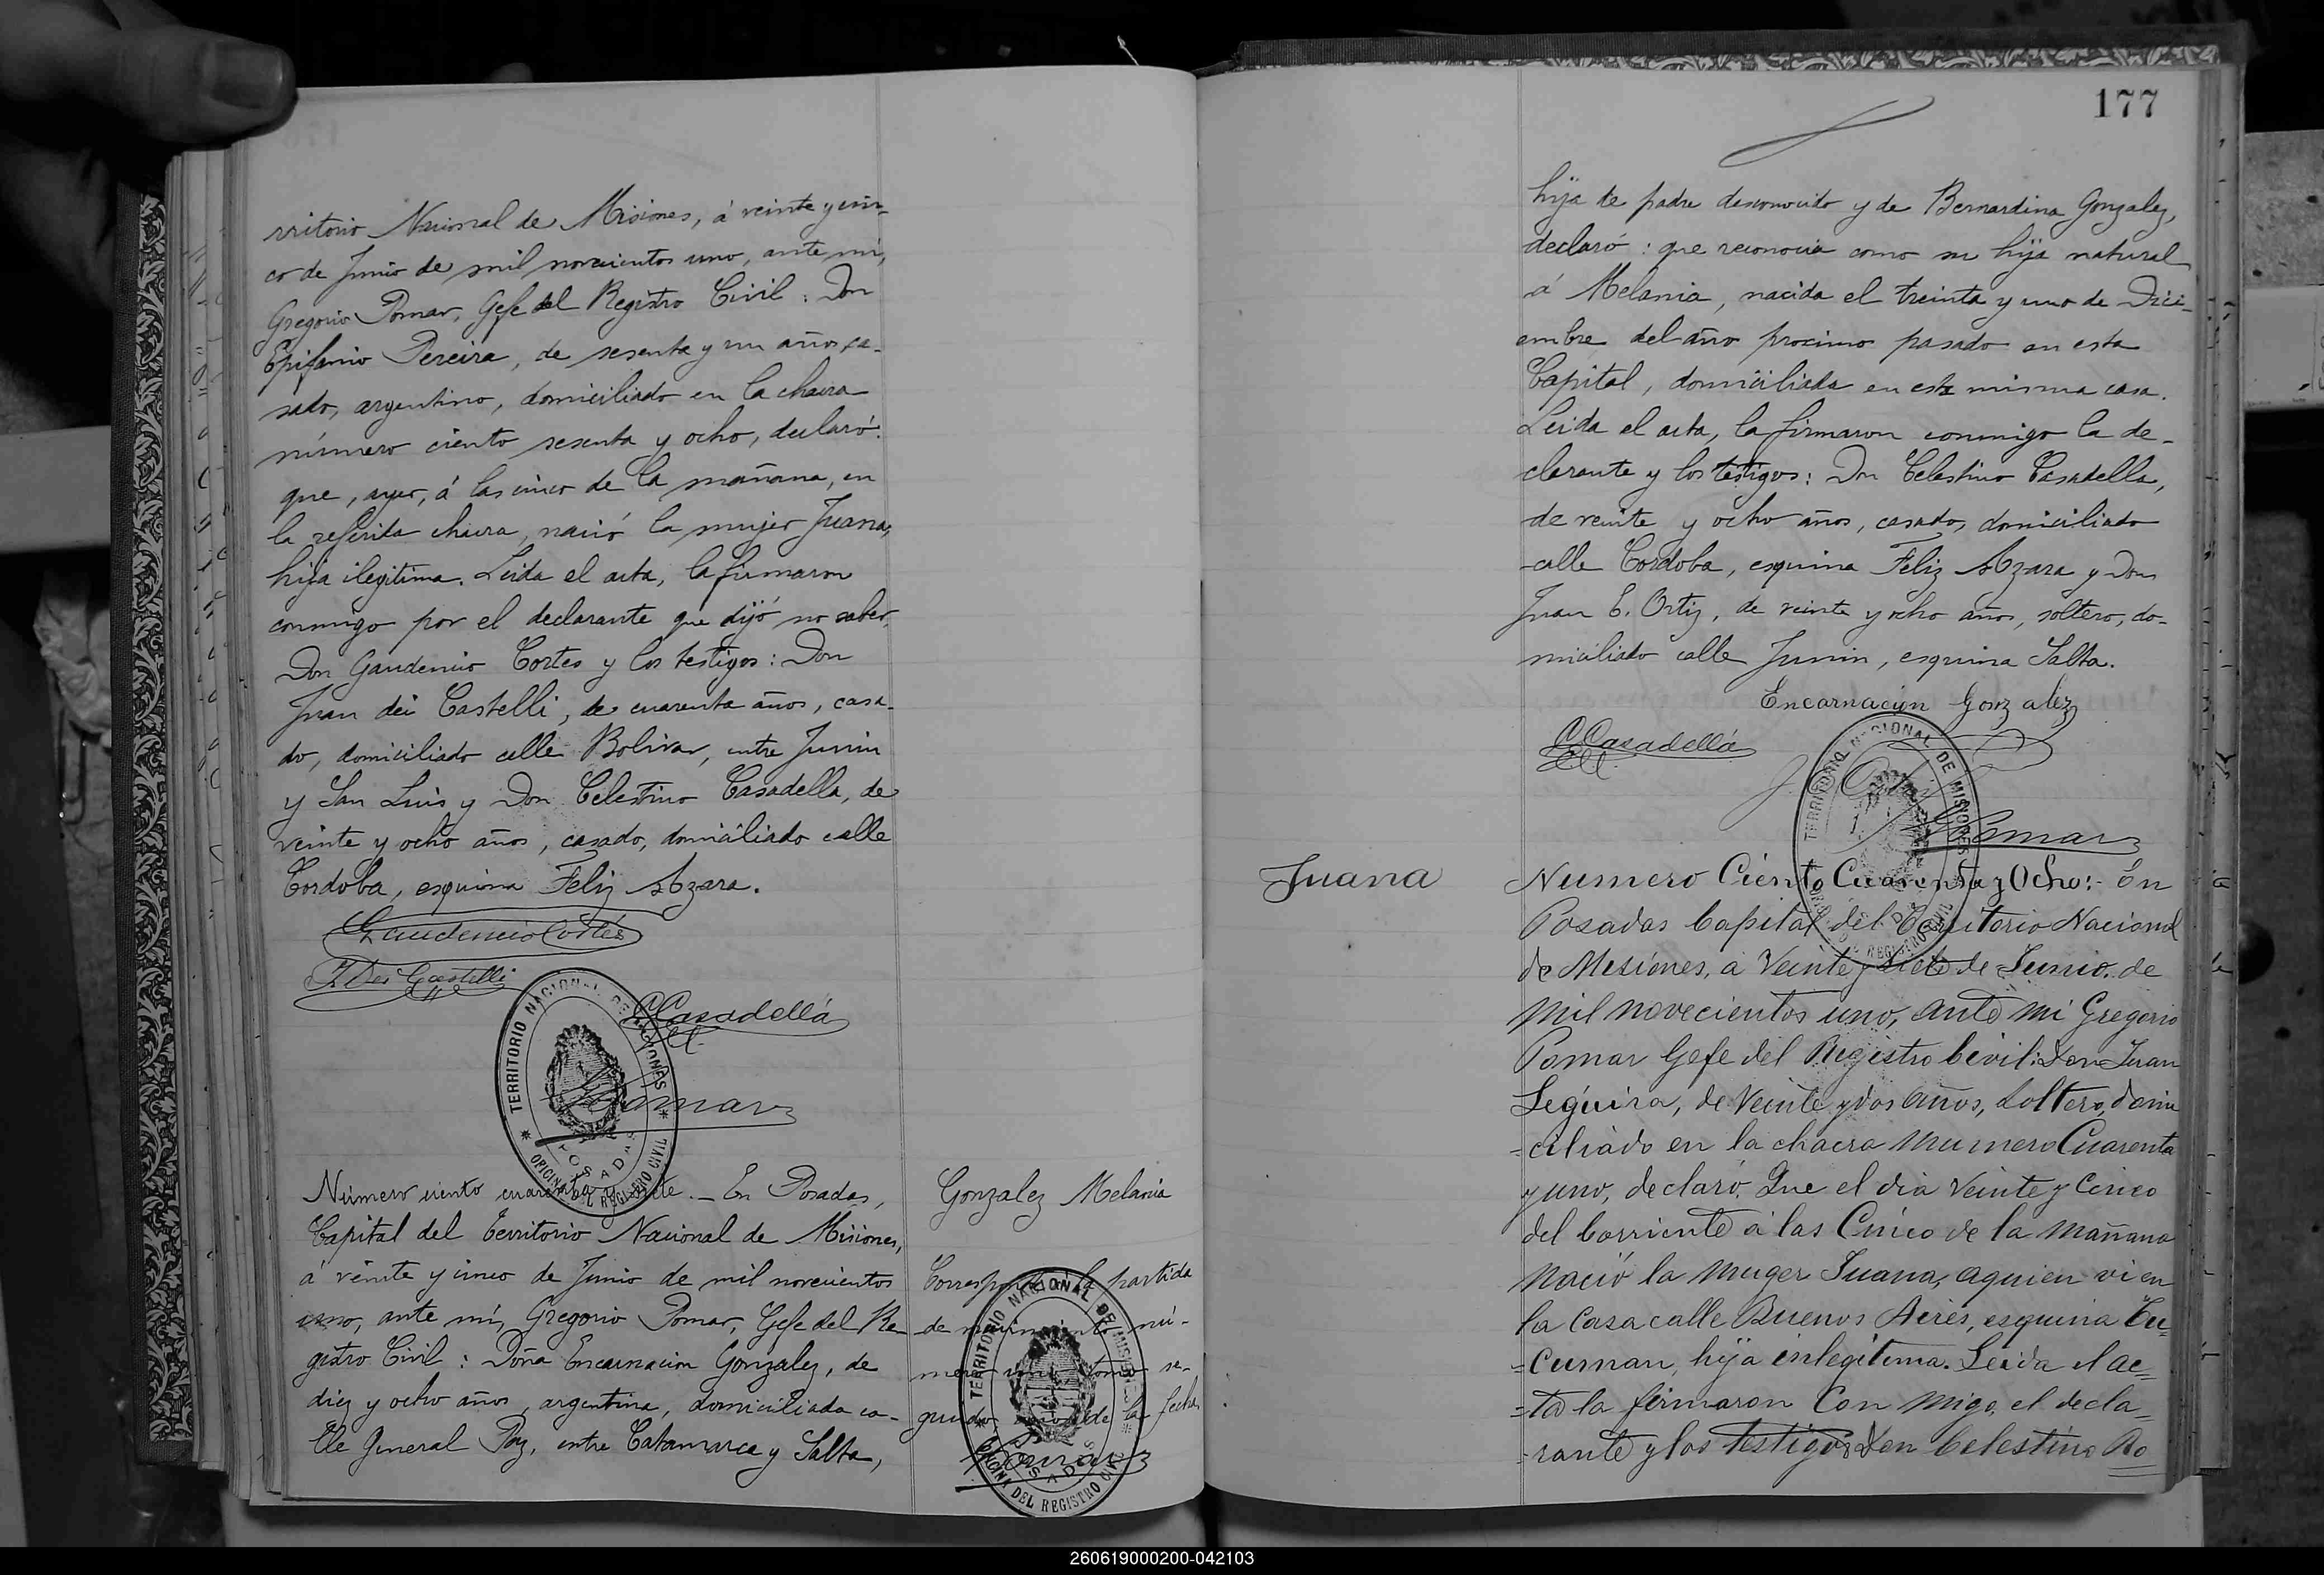 rritorio Nacional de Misiones, á veinte y cin-
co de Junio de mil novecientos uno, ante mí,
Gregorio Pomar, Gefe del Registro Civil: Don
Epifanio Pereira, de sesenta y un años, ca-
sado, argentino, domiciliado en la chacra
número ciento sesenta y ocho, declaró:
que, ayer, á las cinco de la mañana, en
la referida chacra, nació la mujer Juana,
hija ilegitima. Leida el acta, la firmaron
conmigo por el declarante que dijó no saber,
Don Gaudencio Cortes y los testigos: Don
Juan dei Castelli, de cuarenta años, casa-
do, domiciliado calle Bolivar, entre Junin
y San Luis y Don Celestino Casadella, de
veinte y ocho años, casado, domiciliado calle
Cordoba, esquina Feliz Azara.
Gaudencio Cortés
J Dei Castelli
C Casadellá
TERRITORIO NACIONAL DE MISIONES
POSADAS
OFICINA DEL REGISTRO CIVIL
Pomar
Número ciento cuarenta y siete. - En Posadas,
Capital del Territorio Nacional de Misiones,
á veinte y cinco de Junio de mil novecientos
uno, ante mí, Gregorio Pomar, Gefe del Re-
gistro Civil: Doña Encarnacion Gonzalez, de
diez y ocho años, argentina, domiciliada ca-
lle General Paz, entre Catamarca y Salta,
Gonzalez Melania
Corresponde á la partida
de nacimiento nú-
mero tomo se-
gundo de la fecha.
Pomar
TERRITORIO NACIONAL DE MISIONES
POSADAS
OFICINA DEL REGISTRO CIVIL
177
hija de padre desconocido y de Bernardina Gonzalez,
declaró: que reconocia como su hija natural
á Melania, nacida el treinta y uno de Dici-
embre del año procimo pasado en esta
Capital, domiciliada en esta misma casa.
Leida el acta, la firmaron conmigo la de-
clarante y los testigos: Don Celestino Casadella,
de veinte y ocho años, casado, domiciliado
calle Cordoba, esquina Feliz Azara y Don
Juan E. Ortiz, de veinte y ocho años, soltero, do-
miciliado calle Junin, esquina Salta.
Encarnación Gonzalez
C Casadellá
TERRITORIO NACIONAL DE MISIONES
Pomar
Juana
Numero Ciento Cuarenta y Ocho:- én
Posadas Capital del Territorio Nacional
de Mesiones, a Veinte y siete de Junio. de
mil novecientos uno, ante mi Gregorio
Pomar Gefe del Registro Cevil: Don Juan
Seguira, de Veinte y dos años, Soltero, domi
-ciliado en la chacra Numero Cuarenta
y uno, declaró. Que el dia Veinte y Cinco
del Corriente á las Cinco de la mañana
Nació la muger Juana, aquien vi en
la Casa calle Buenos Aeres, esquina Tu=
=cuman, hija inlegitima. Leida el ac=
=ta la firmaron Con migo, el decla=
-rante y los testigos Don Celestino Ro
260619000200-042103